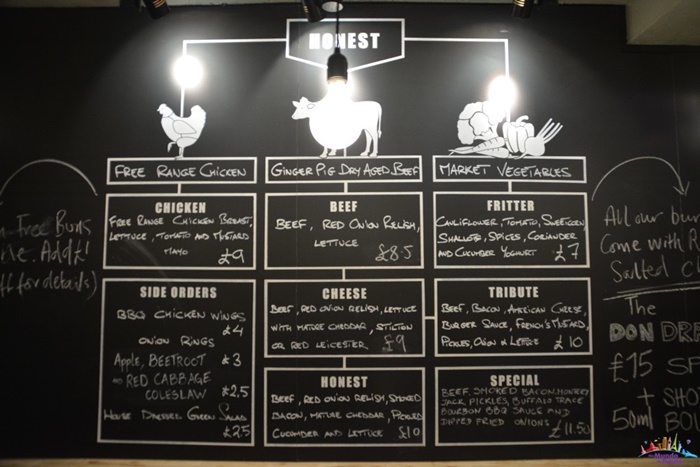 HONEST
FREE RANGE CHICKEN
GINGER PIG DRY AGED BEEF
MARKET VEGETABLES
CHICKEN
FREE RANGE CHICKEN BREAST,
LETTUCE, TOMATO AND MUSTARD
MAYO
£9
SIDE ORDERS
BBQ CHICKEN WINGS
£4
ONION RINGS
£3
Apple, BEETROOT
AND RED CABBAGE
COLESLAW
£2.5
HOUSE DRESSED GREEN SALAD
£2.5
BEEF
BEEF, RED ONION RELISH,
LETTUCE
£8.5
CHEESE
BEEF, RED ONION RELISH, LETTUCE
WITH MATURE CHEDDAR, STILTON
OR RED LEICESTER
£9
HONEST
BEEF, RED ONION RELISH, SMOKED
BACON, MATURE CHEDDAR, PICKLED
CUCUMBER AND LETTUCE
£10
FRITTER
CAULIFLOWER, TOMATO, SWEETCORN
SHALLOTS, SPICES, CORIANDER
AND CUCUMBER YOGHURT
£7
TRIBUTE
BEEF, BACON, AMERICAN CHEESE,
BURGER SAUCE, FRENCH'S MUSTARD,
PICKLES, ONION & LETTUCE
£10
SPECIAL
BEEF, SMOKED BACON, MONTEREY
JACK, PICKLES, BUFFALO TRACE
BOURBON BBQ SAUCE AND
DIPPED FRIED ONIONS
£11.50
Free Buns
Add £1
for details)
All our bu
Come with R
Salted C
The
DON DR
£15 SP
+ SHO
50ml BOU